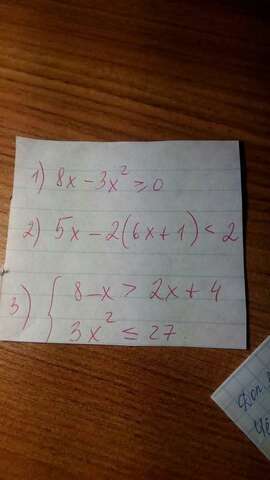 1) 8x - 3x² ⩾ 0
2) 5x - 2(6x + 1) < 2
3) { 8 - x > 2x + 4
3x² ≤ 27